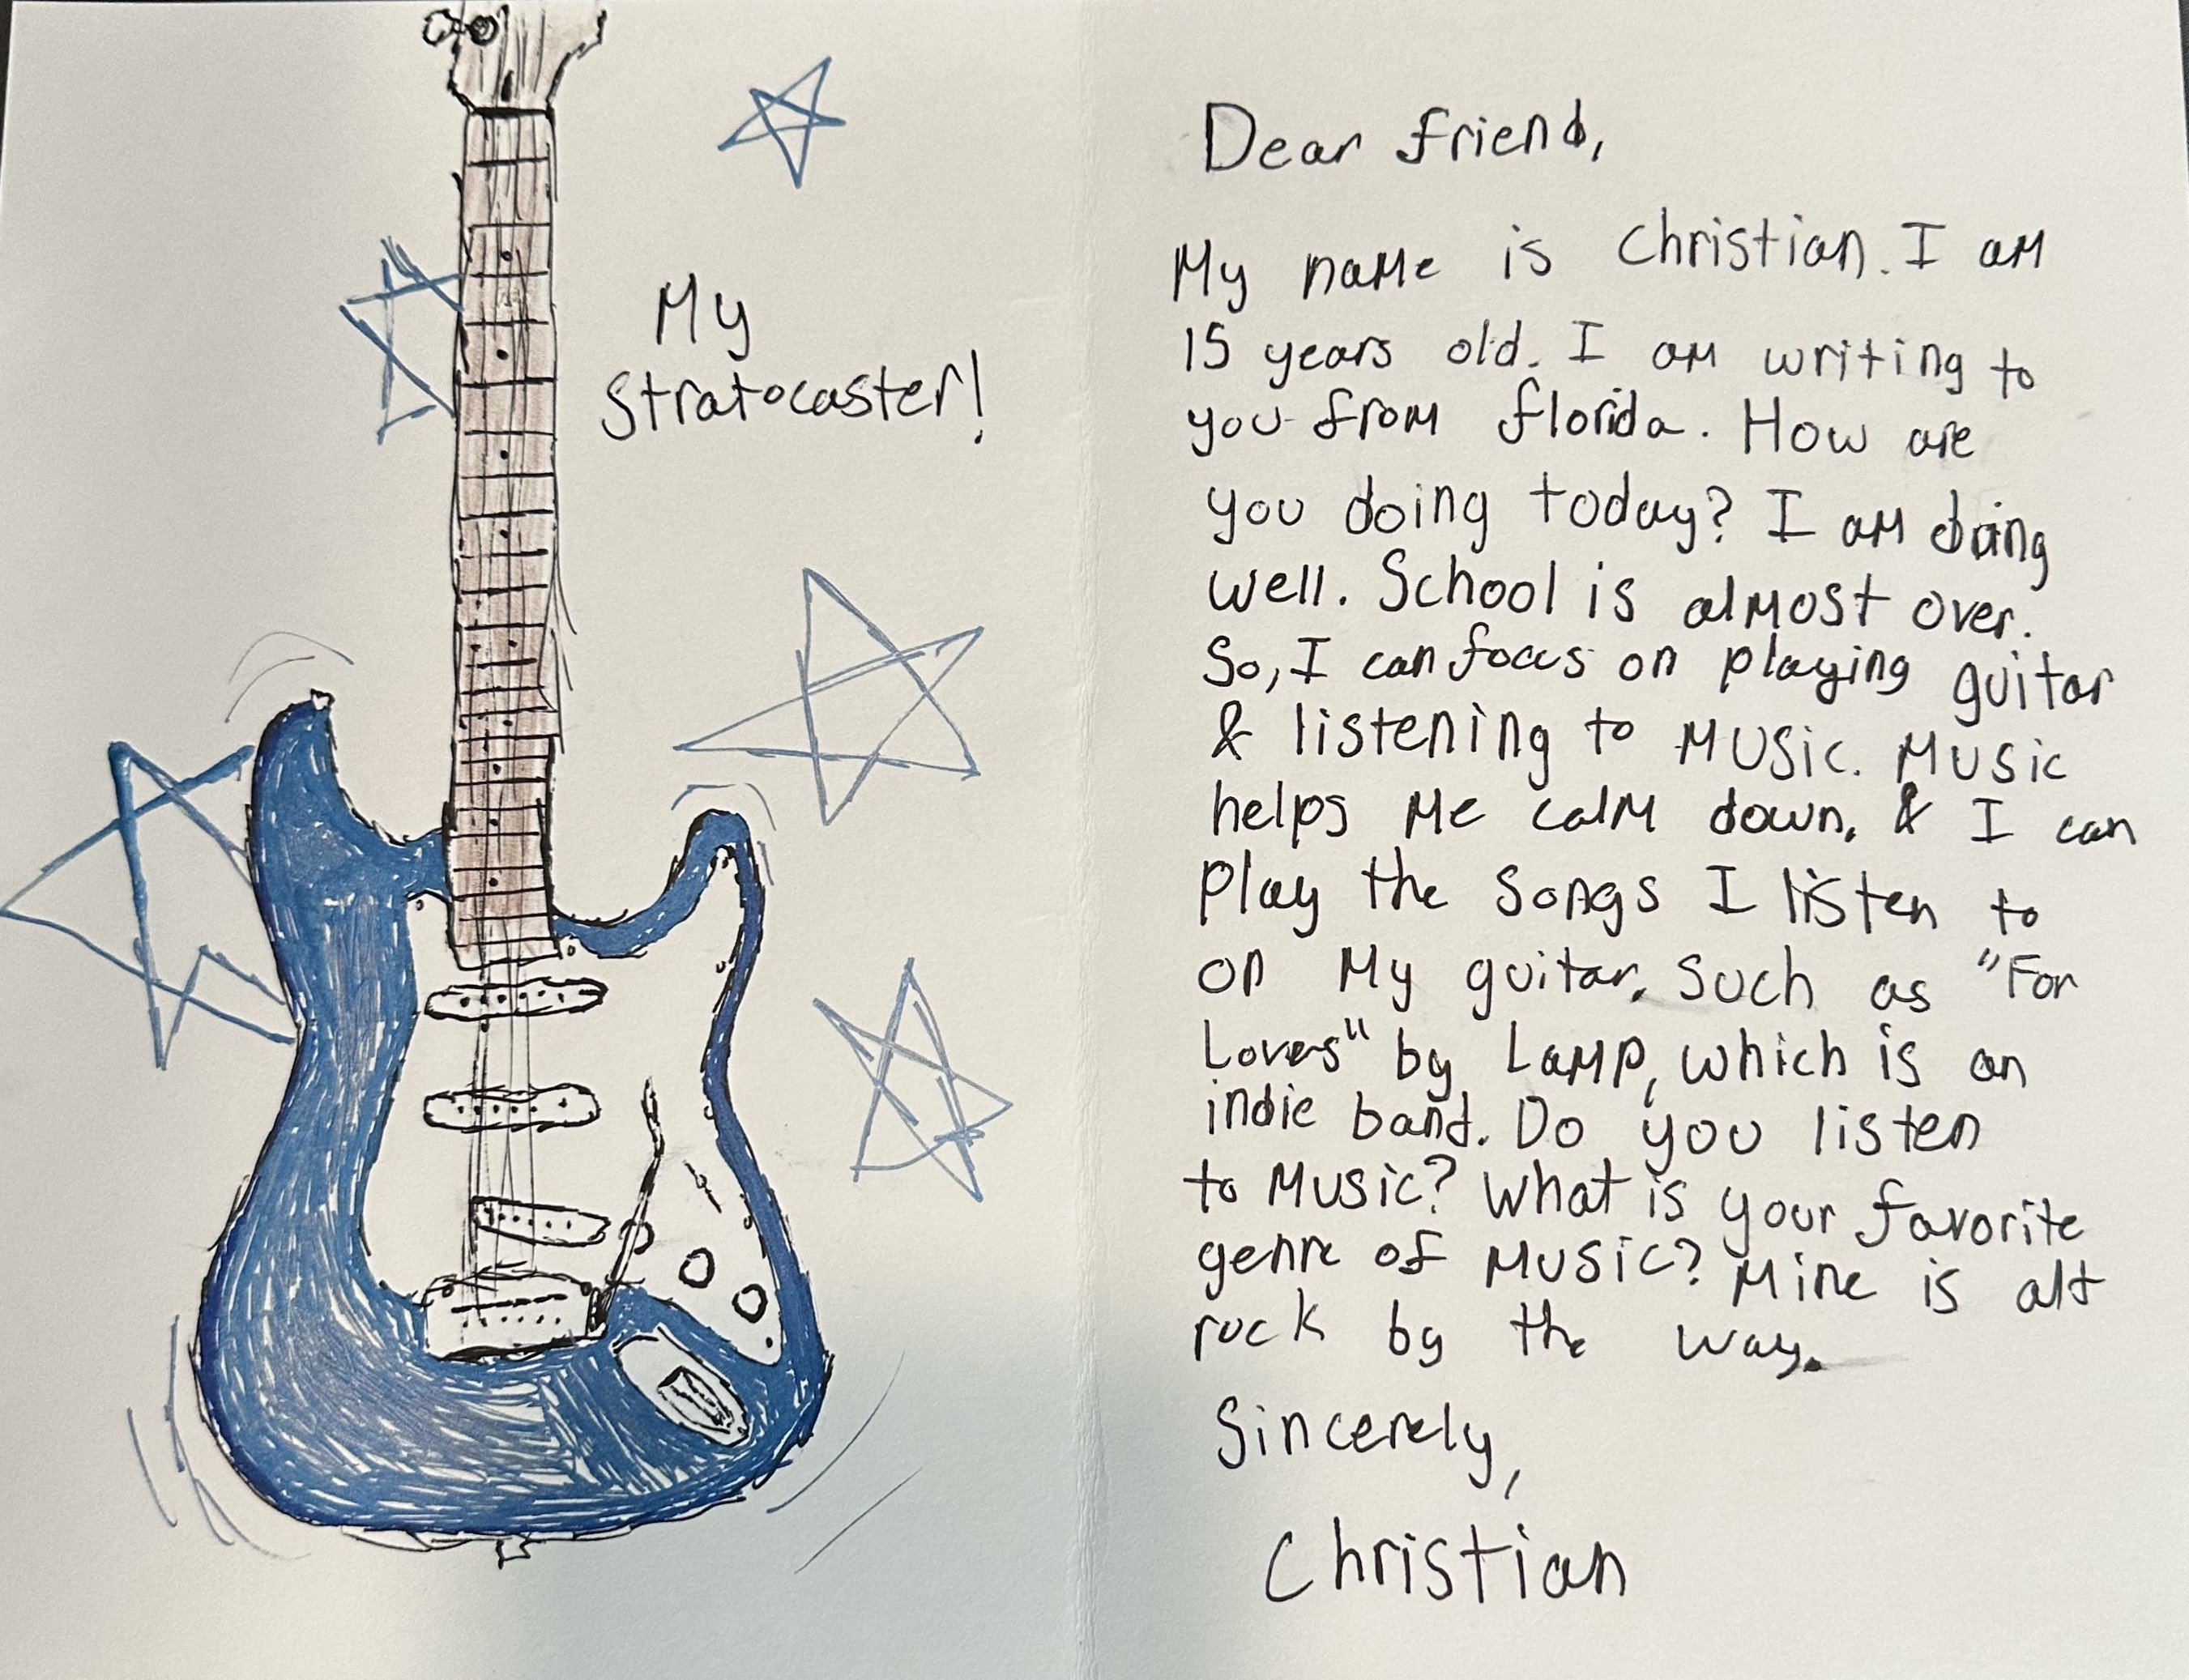 My
Stratocaster!
Dear friend,
My name is Christian. I am
15 years old. I am writing to
you from florida. How are
you doing today? I am doing
well. School is almost over.
So, I can focus on playing guitar
& listening to music. Music
helps me calm down. & I can
play the songs I listen to
on my guitar. Such as "For
Lovers" by Lamp, which is an
indie band. Do you listen
to music? What is your favorite
genre of music? Mine is alt
rock by the way.
Sincerely,
Christian